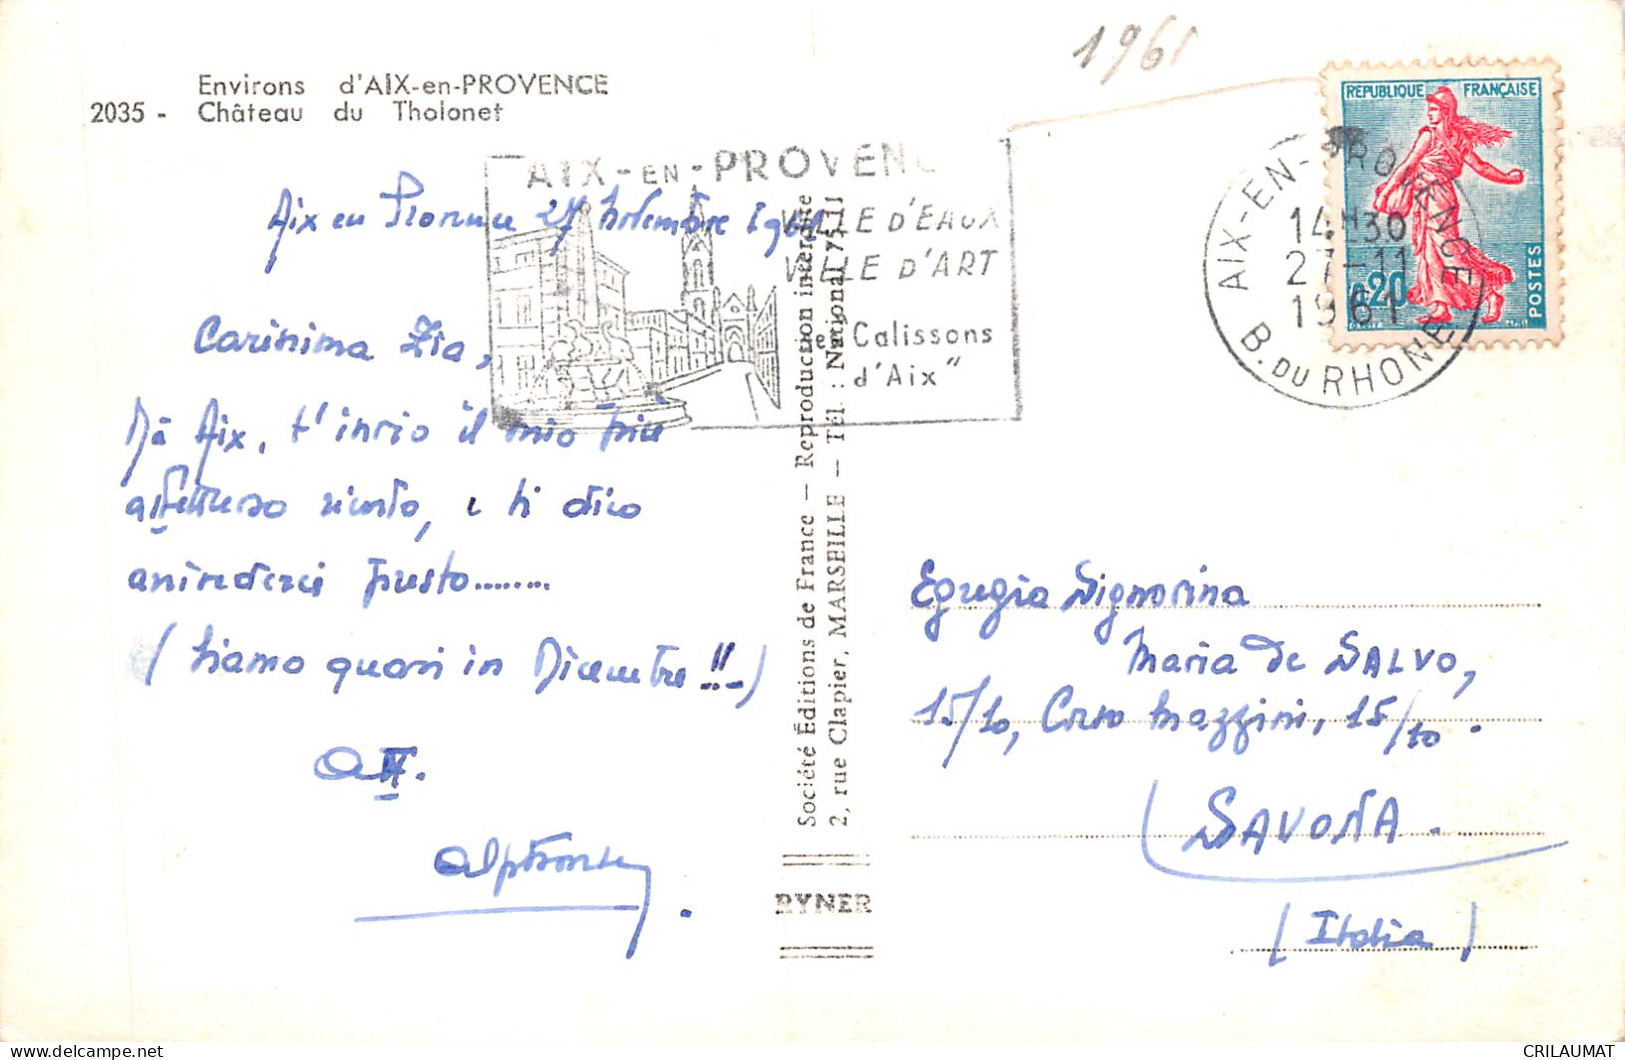 Environs d'AIX-en-PROVENCE
2035 - Château du Tholonet
1961
AIX-EN-PROVENC
VILLE D'EAUX
VILLE D'ART
Calissons
d'Aix"
REPUBLIQUE FRANÇAISE
0,20
POSTES
AIX-EN-PROVENCE
14H30
27-11
1961
B. DU RHONE
Aix en Provence 27 Novembre 1961
Carissima Zia,
Da Aix, t'invio il mio più
affettuoso ricordo, e ti dico
arrivederci presto........
(siamo quasi in Dicembre!!-)
Aff.
Société Éditions de France — Reproduction interdite
2, rue Clapier, MARSEILLE — Tél. : National 75-11
RYNER
Egregia Signorina
Maria de SALVO,
15/10, Corso Mazzini, 15/10.
SAVONA.
(Italia)
CRILAUMAT